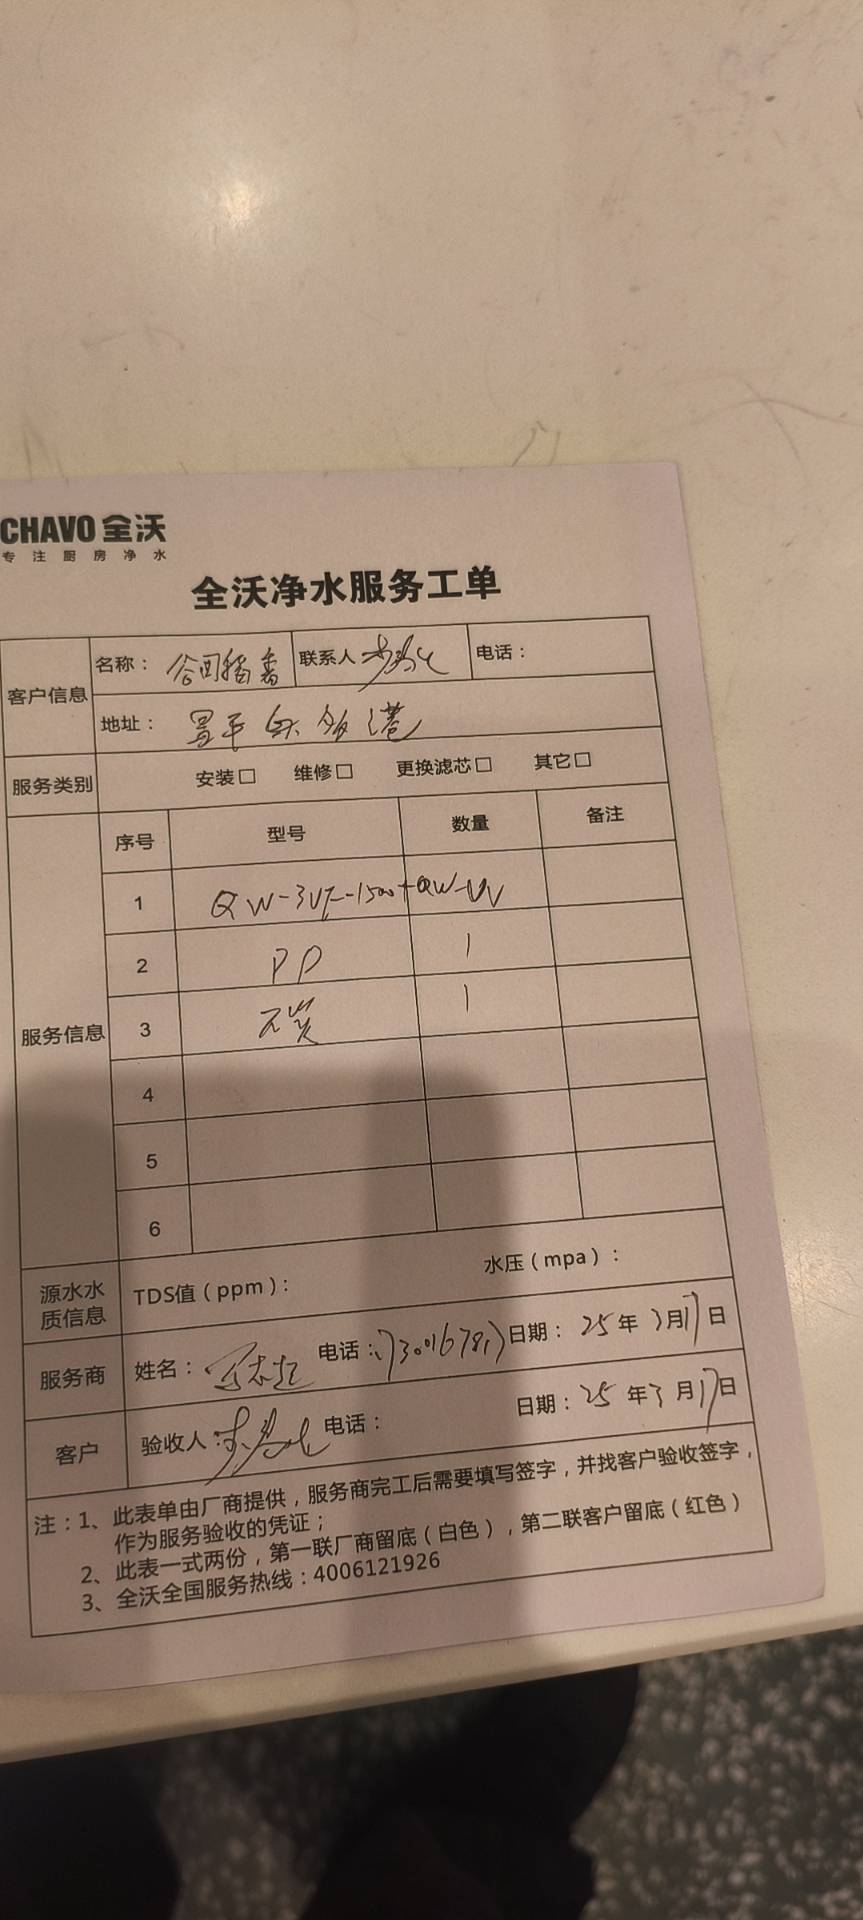 CHAVO 全沃
专注厨房净水
全沃净水服务工单
客户信息 名称： 联系人 电话：
地址：
服务类别 安装□ 维修□ 更换滤芯□ 其它□
服务信息 序号 型号 数量 备注
1 QW-3UF-1500+QW-UV
2 PP 1
3 1
4
5
6
源水水质信息 TDS值（ppm）： 水压（mpa）：
服务商 姓名： 电话： 日期：25年3月17日
客户 验收人： 电话： 日期：25年3月17日
注：1、此表单由厂商提供，服务商完工后需要填写签字，并找客户验收签字，
作为服务验收的凭证；
2、此表一式两份，第一联厂商留底（白色），第二联客户留底（红色）
3、全沃全国服务热线：4006121926